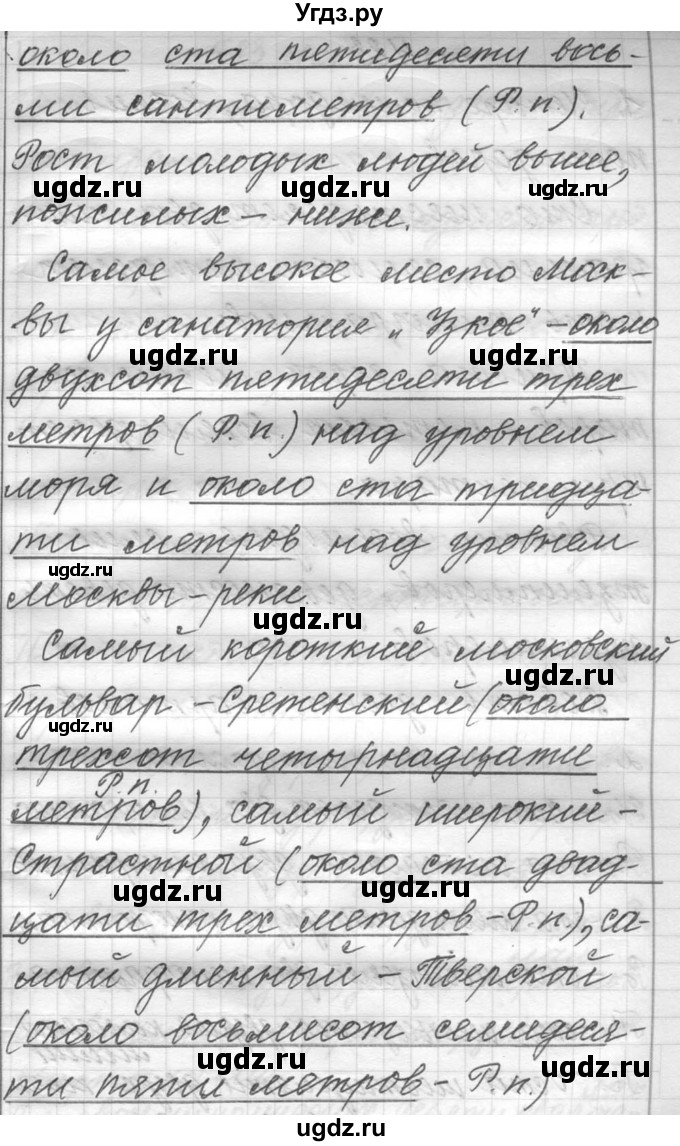 Угдз.ру
около ста пятидесяти вось-
ми сантиметров (Р.п.).
Рост молодых людей выше,
ugdz.ru ugdz.ru ugdz.ru
пожилых – ниже.
Самое высокое место Моск-
вы у санатория „Узкое" – около
ugdz.ru ugdz.ru
двухсот пятидесяти трех
метров (Р.п.) над уровнем
моря и около ста тридца-
ти метров над уровнем
ugdz.ru
Москвы-реки.
ugdz.ru
Самый короткий московский
ugdz.ru
бульвар – Сретенский (около
ugdz.ru
трехсот четырнадцати
Р.п.
метров), самый широкий –
Страстный (около ста двад-
ugdz.ru ugdz.ru
цати трех метров – Р.п.), са-
мый дменный – Тверской
(около восьмисот семидеся-
ugdz.ru ugdz.ru
ти пяти метров – Р.п.)
ugdz.ru